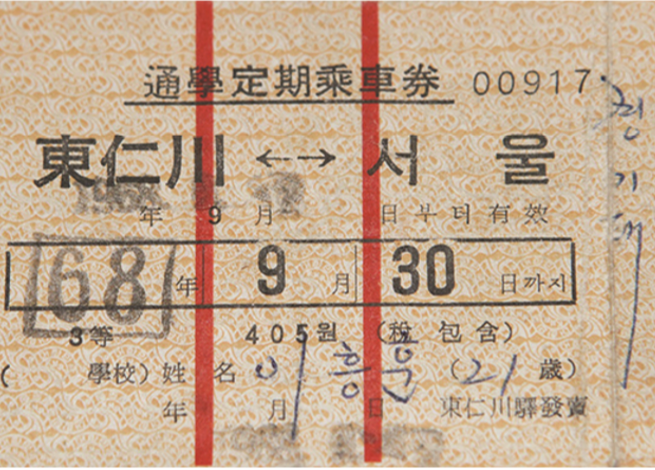 通學定期乘車券 00917
東仁川 ←→ 서울
年 9 月 日부터 有效
68 年 9 月 30 日까지
3等 405원 (稅包含)
( 學校) 姓名 이흥운 (21歲)
年 月 日 東仁川驛發賣
정기대